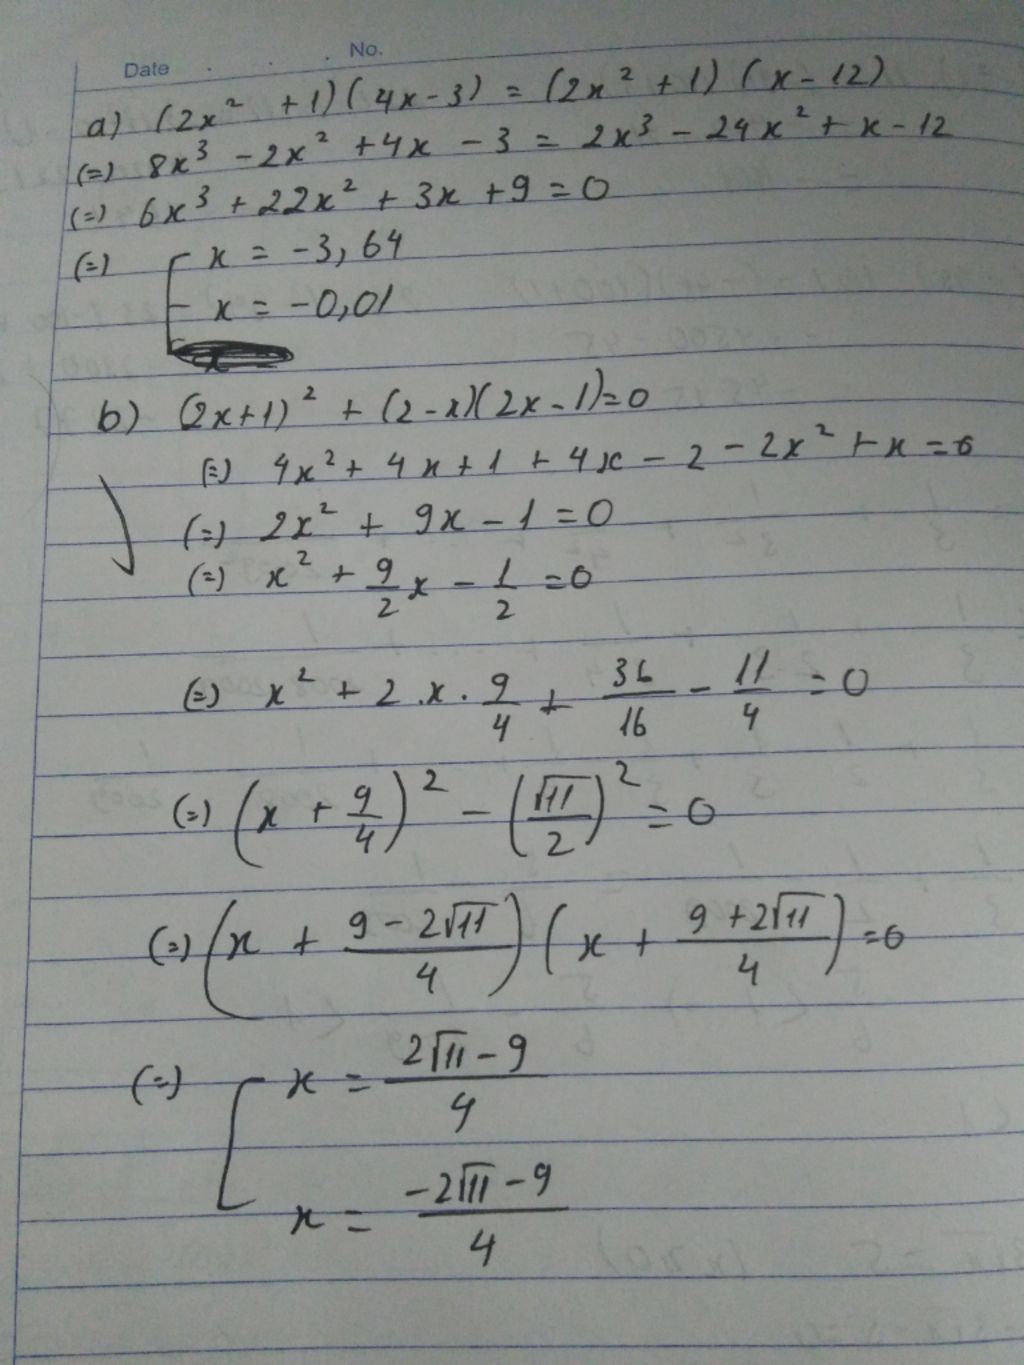 Date . . . No.
a) (2x² + 1)(4x - 3) = (2x² + 1)(x - 12)
(=) 8x³ - 2x² + 4x - 3 = 2x³ - 24x² + x - 12
(=) 6x³ + 22x² + 3x + 9 = 0
(=) x = -3,64
x = -0,01
b) (2x+1)² + (2-x)(2x-1)=0
(=) 4x² + 4x + 1 + 4x - 2 - 2x² + x = 0
(=) 2x² + 9x - 1 = 0
(=) x² + 9/2 x - 1/2 = 0
(=) x² + 2.x.9/4 + 36/16 - 11/4 = 0
(=) (x + 9/4)² - (√11/2)² = 0
(=) (x + (9 - 2√11)/4) (x + (9 + 2√11)/4) = 0
(=) x = (2√11 - 9)/4
x = (-2√11 - 9)/4